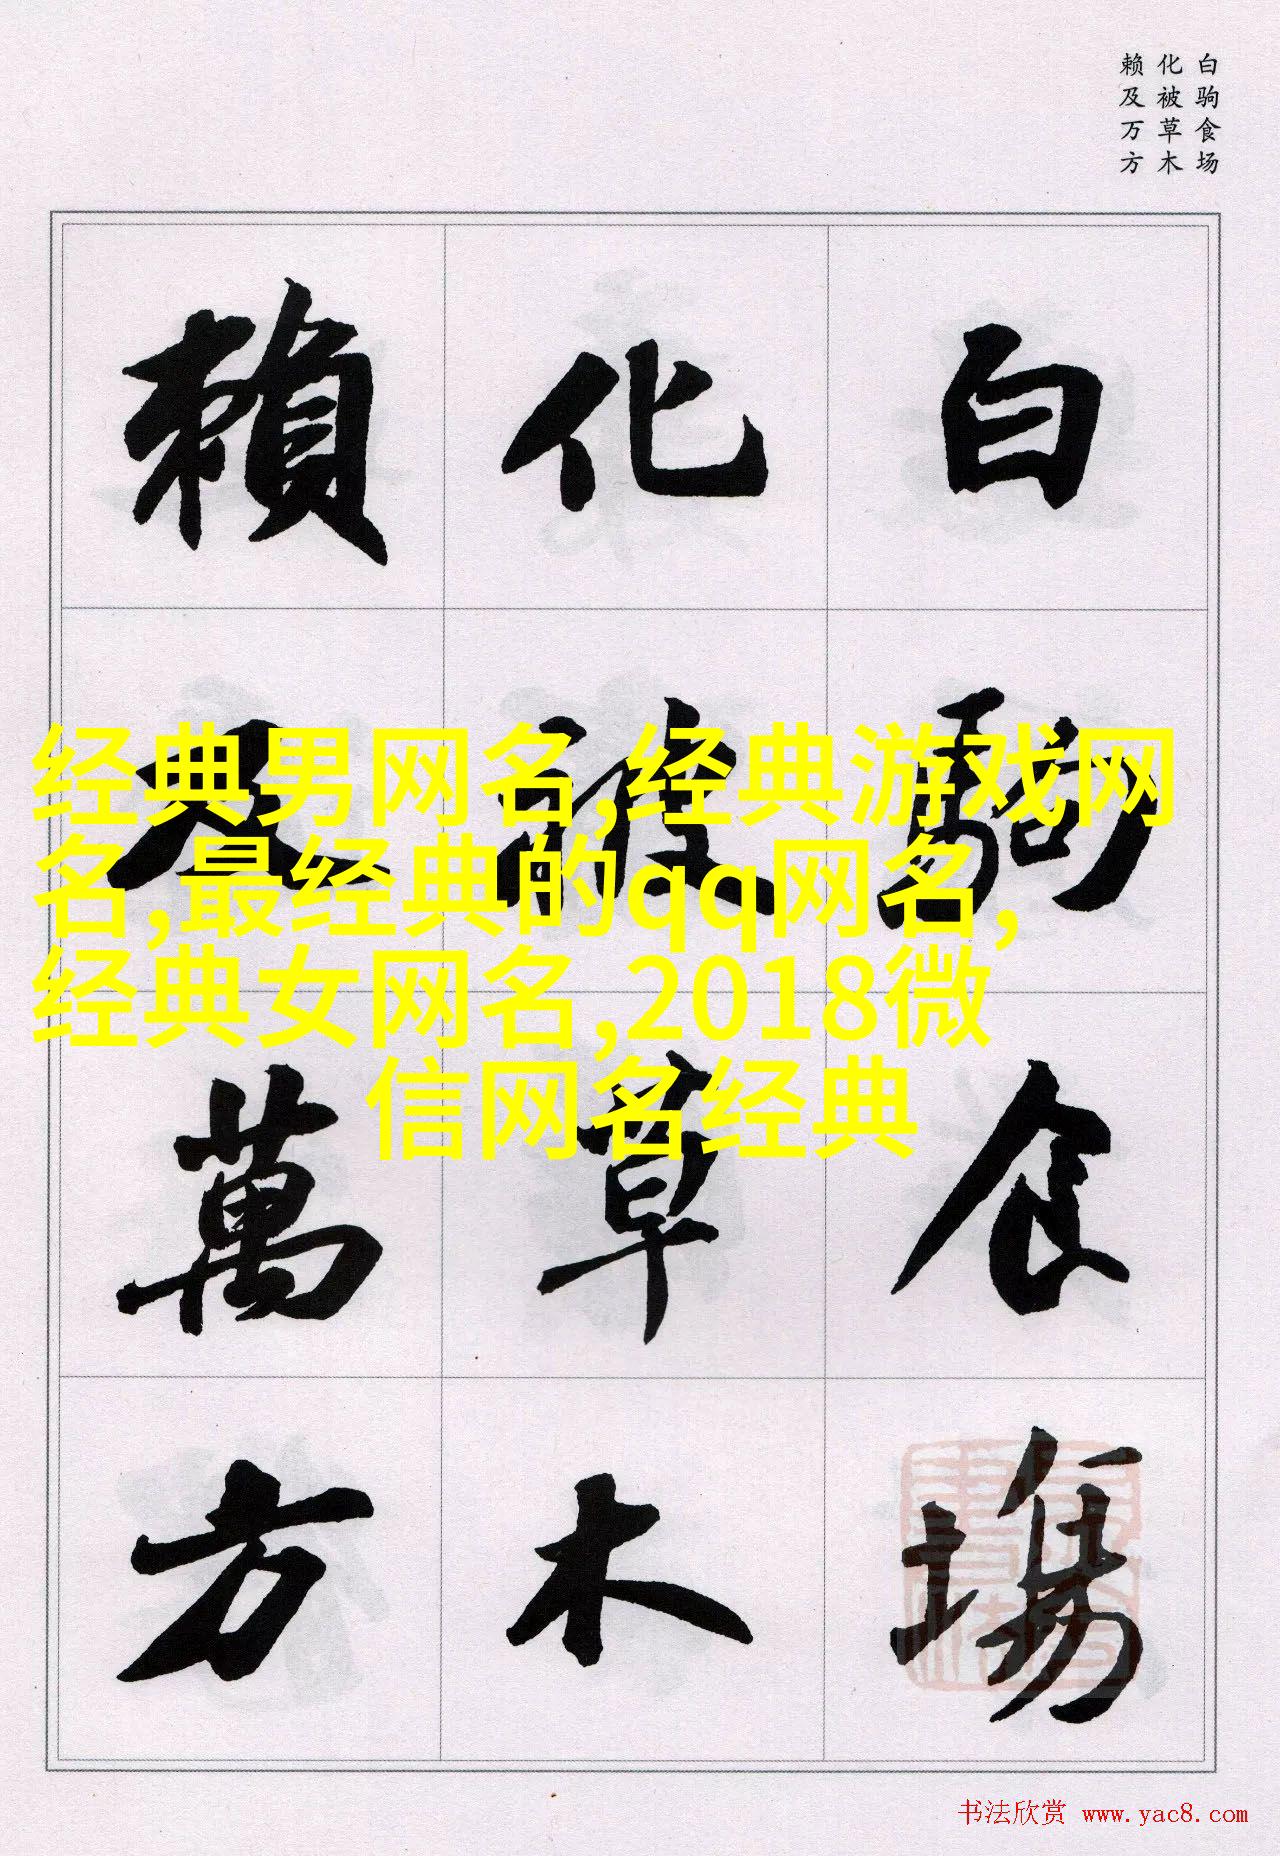 白驹食场
化被草木
赖及万方
白駒食場
化被草木
賴及萬方
经典男网名,经典游戏网
名,最经典的qq网名,
经典女网名,2018微
信网名经典
书法欣赏 www.yac8.com